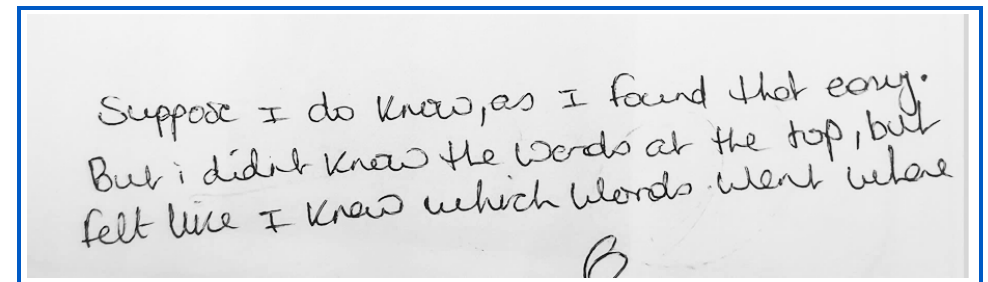 Suppose I do know, as I found that easy.
But i didnt know the words at the top, but
felt like I knew which words went where